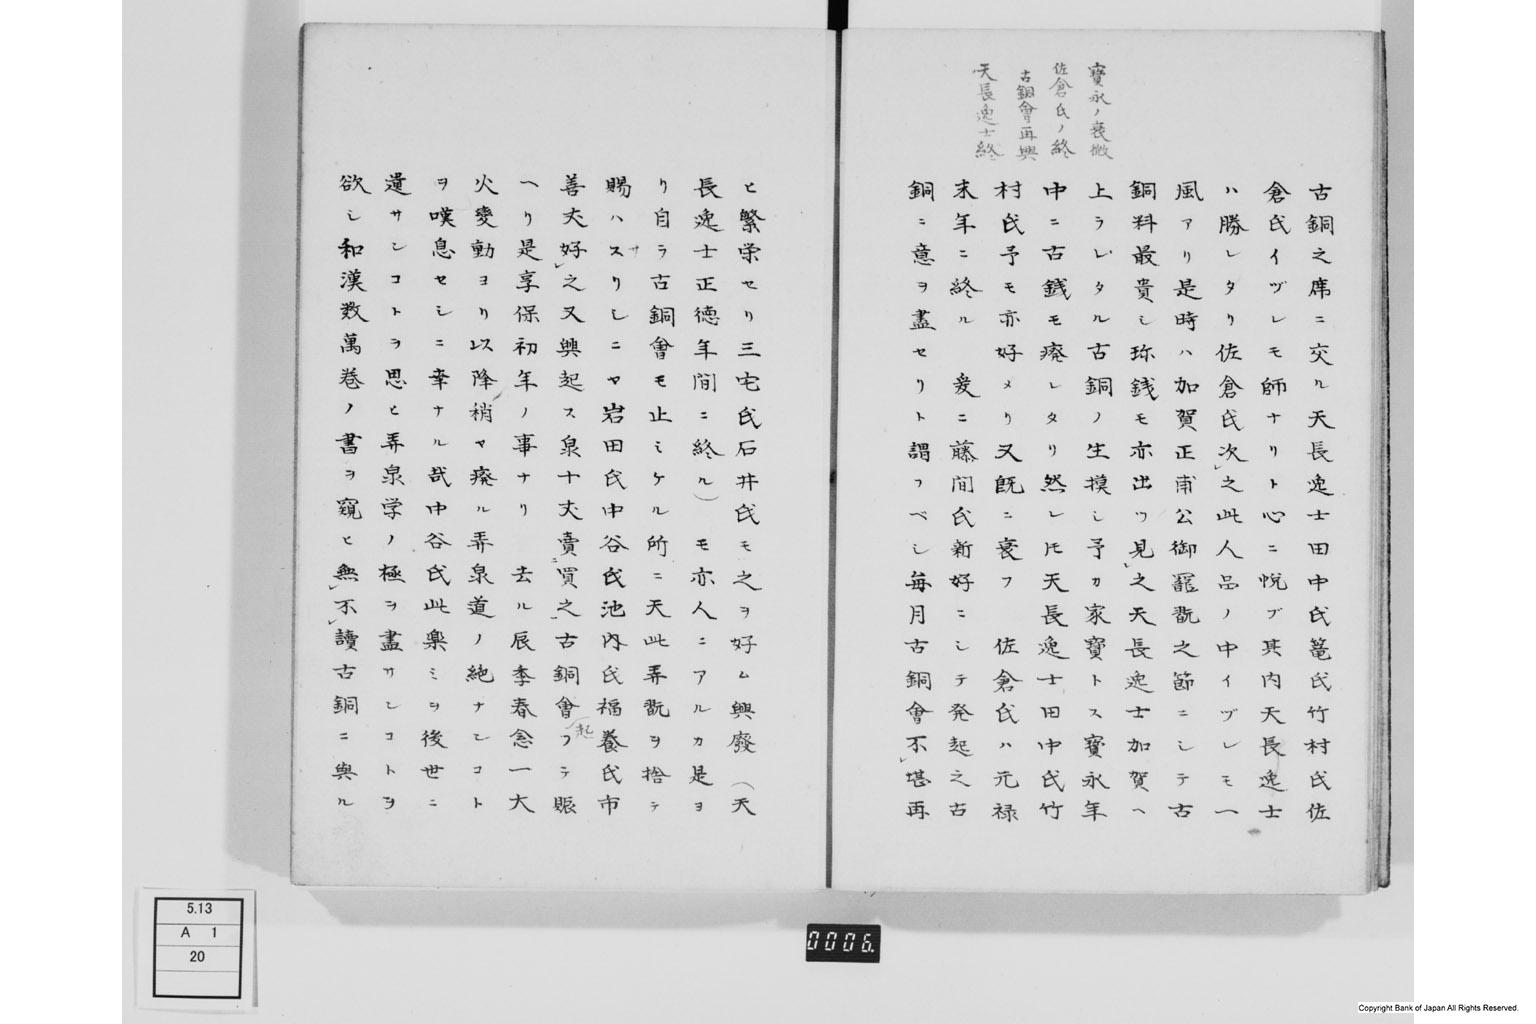 寶永ノ衰微
佐倉氏ノ終
古銅會再興
天長逸士終
古銅之席ニ交ル天長逸士田中氏篭氏竹村氏佐
倉氏イヅレモ師ナリト心ニ悦ブ其内天長逸士
ハ勝レタリ佐倉氏次之此人品ノ中イヅレモ一
風アリ是時ハ加賀正甫公御翫之節ニシテ古
銅料最貴シ珎銭モ亦出ツ見之天長逸士加賀ヘ
上ラレタル古銅ノ生摸シ予カ家寶トス寶永年
中ニ古銭モ廃レタリ然レ𪜈天長逸士田中氏竹
村氏予モ亦好メリ又既ニ衰フ 佐倉氏ハ元禄
末年ニ終ル 爰ニ藤間氏新好ニシテ発起之古
銅ニ意ヲ盡セリト謂フベシ毎月古銅會不堪再
ヒ繁栄セリ三宅氏石井氏モ之ヲ好ム興廢(天
長逸士正德年間ニ終ル)モ亦人ニアルカ是ヨ
リ自ラ古銅會モ止ミケル所ニ天此弄翫ヲ捨テ
賜ハスサリシニヤ岩田氏中谷氏池内氏福養氏市
善丈好之又興起ス泉十丈賣買之古銅會起フテ賑
ヘリ是享保初年ノ事ナリ 去ル辰季春念一大
火変動ヨリ以降稍々廃ル弄泉道ノ絶ナンコト
ヲ嘆息セシニ幸ナル哉中谷氏此樂ミヲ後世ニ
遺サンコトヲ思ヒ弄泉学ノ極ヲ盡サンコトヲ
欲シ和漢数萬巻ノ書ヲ窺ヒ無不讀古銅ニ與ル
5.13
A 1
20
0006.
Copyright Bank of Japan All Rights Reserved.